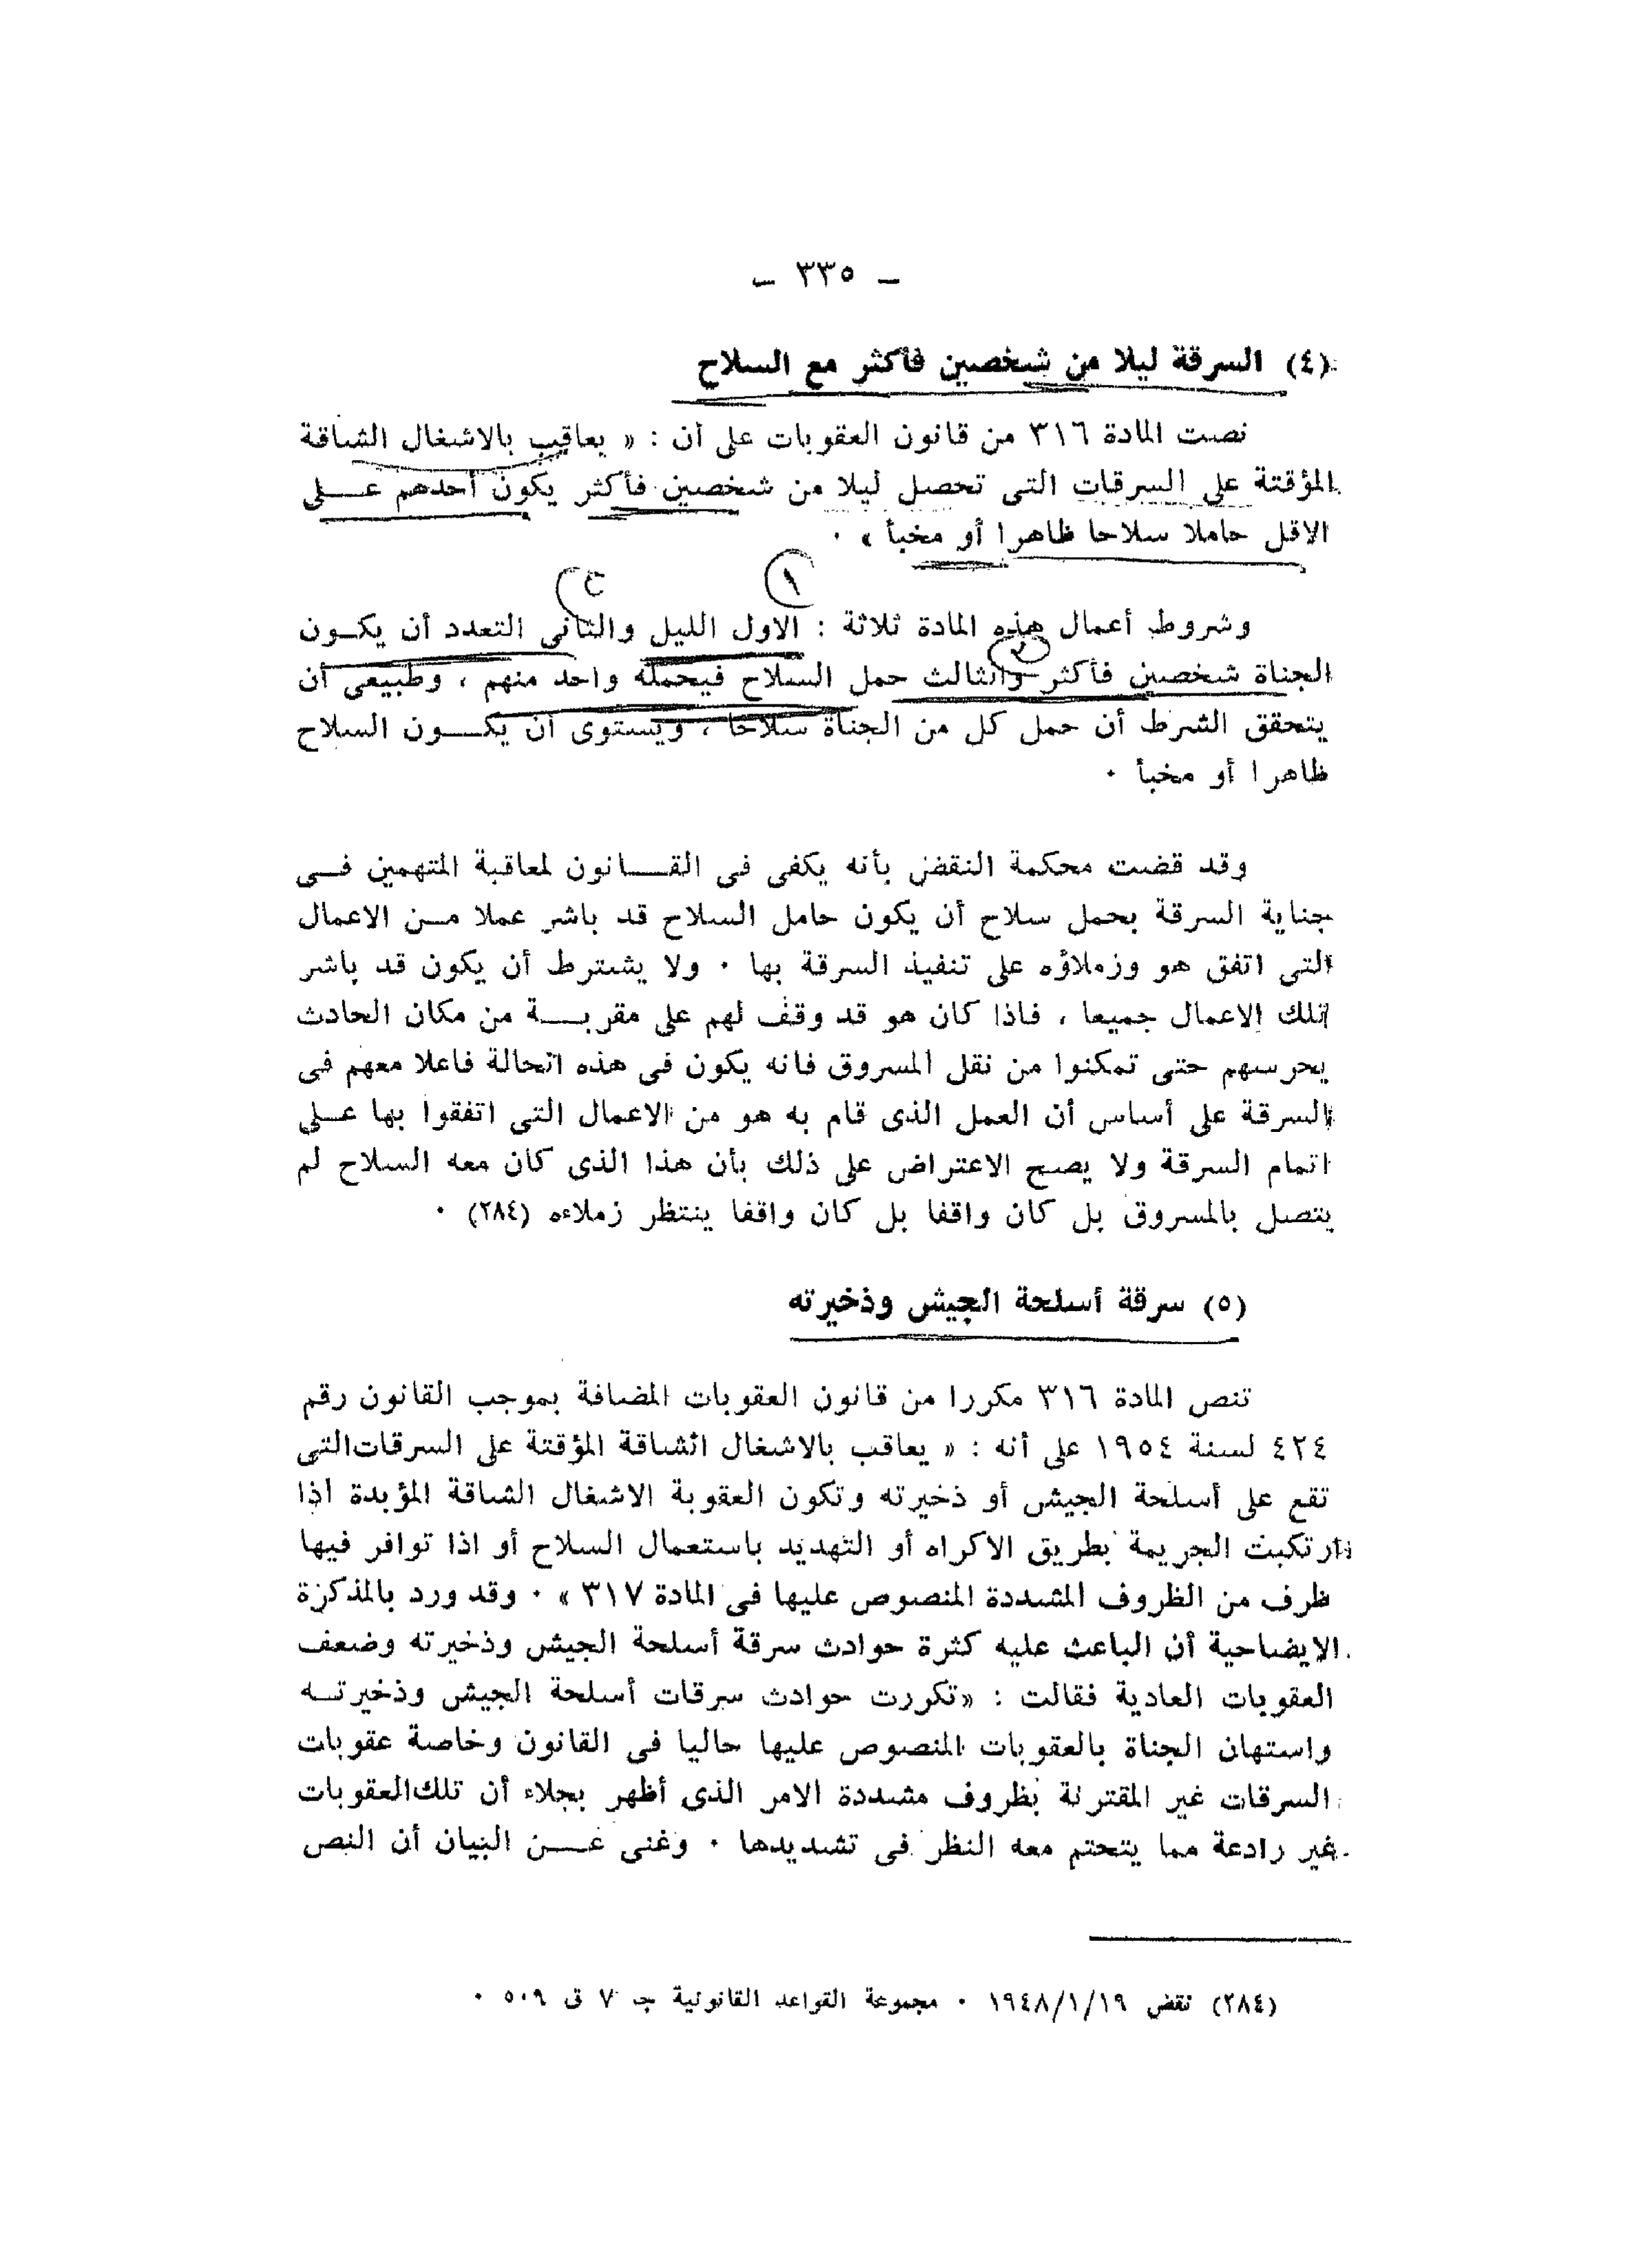 – ٣٣٥ –
(٤) السرقة ليلا من شخصين فأكثر مع السلاح
نصت المادة ٣١٦ من قانون العقوبات على أن : « يعاقب بالاشغال الشاقة
المؤقتة على السرقات التى تحصل ليلا من شخصين فأكثر يكون أحدهم عــلى
الاقل حاملا سلاحا ظاهرا أو مخبأ » ٠
١ ٢
وشروط أعمال هذه المادة ثلاثة : الاول الليل والثانى التعدد أن يكــون
٣
الجناة شخصين فأكثر والثالث حمل السلاح فيحمله واحد منهم ، وطبيعى أن
يتحقق الشرط أن حمل كل من الجناة سلاحا ، ويستوى أن يكــون السلاح
ظاهرا أو مخبأ ٠
وقد قضت محكمة النقض بأنه يكفى فى القــانون لمعاقبة المتهمين فــى
جناية السرقة بحمل سلاح أن يكون حامل السلاح قد باشر عملا مــن الاعمال
التى اتفق هو وزملاؤه على تنفيذ السرقة بها ٠ ولا يشترط أن يكون قد باشر
تلك الاعمال جميعا ، فاذا كان هو قد وقف لهم على مقربــة من مكان الحادث
يحرسهم حتى تمكنوا من نقل المسروق فانه يكون فى هذه الحالة فاعلا معهم فى
السرقة على أساس أن العمل الذى قام به هو من الاعمال التى اتفقوا بها عــلى
اتمام السرقة ولا يصح الاعتراض على ذلك بأن هذا الذى كان معه السلاح لم
يتصل بالمسروق بل كان واقفا بل كان واقفا ينتظر زملاءه (٢٨٤) ٠
(٥) سرقة أسلحة الجيش وذخيرته
تنص المادة ٣١٦ مكررا من قانون العقوبات المضافة بموجب القانون رقم
٤٢٤ لسنة ١٩٥٤ على أنه : « يعاقب بالاشغال الشاقة المؤقتة على السرقات التى
تقع على أسلحة الجيش أو ذخيرته وتكون العقوبة الاشغال الشاقة المؤبدة اذا
ارتكبت الجريمة بطريق الاكراه أو التهديد باستعمال السلاح أو اذا توافر فيها
ظرف من الظروف المشددة المنصوص عليها فى المادة ٣١٧ » ٠ وقد ورد بالمذكرة
الايضاحية أن الباعث عليه كثرة حوادث سرقة أسلحة الجيش وذخيرته وضعف
العقوبات العادية فقالت : «تكررت حوادث سرقات أسلحة الجيش وذخيرتــه
واستهان الجناة بالعقوبات المنصوص عليها حاليا فى القانون وخاصة عقوبات
السرقات غير المقترنة بظروف مشددة الامر الذى أظهر بجلاء أن تلك العقوبات
غير رادعة مما يتحتم معه النظر فى تشديدها ٠ وغنى عــن البيان أن النص
(٢٨٤) نقض ١٩٤٨/١/١٩ ٠ مجموعة القواعد القانونية جـ ٧ ق ٥٠٩ ٠